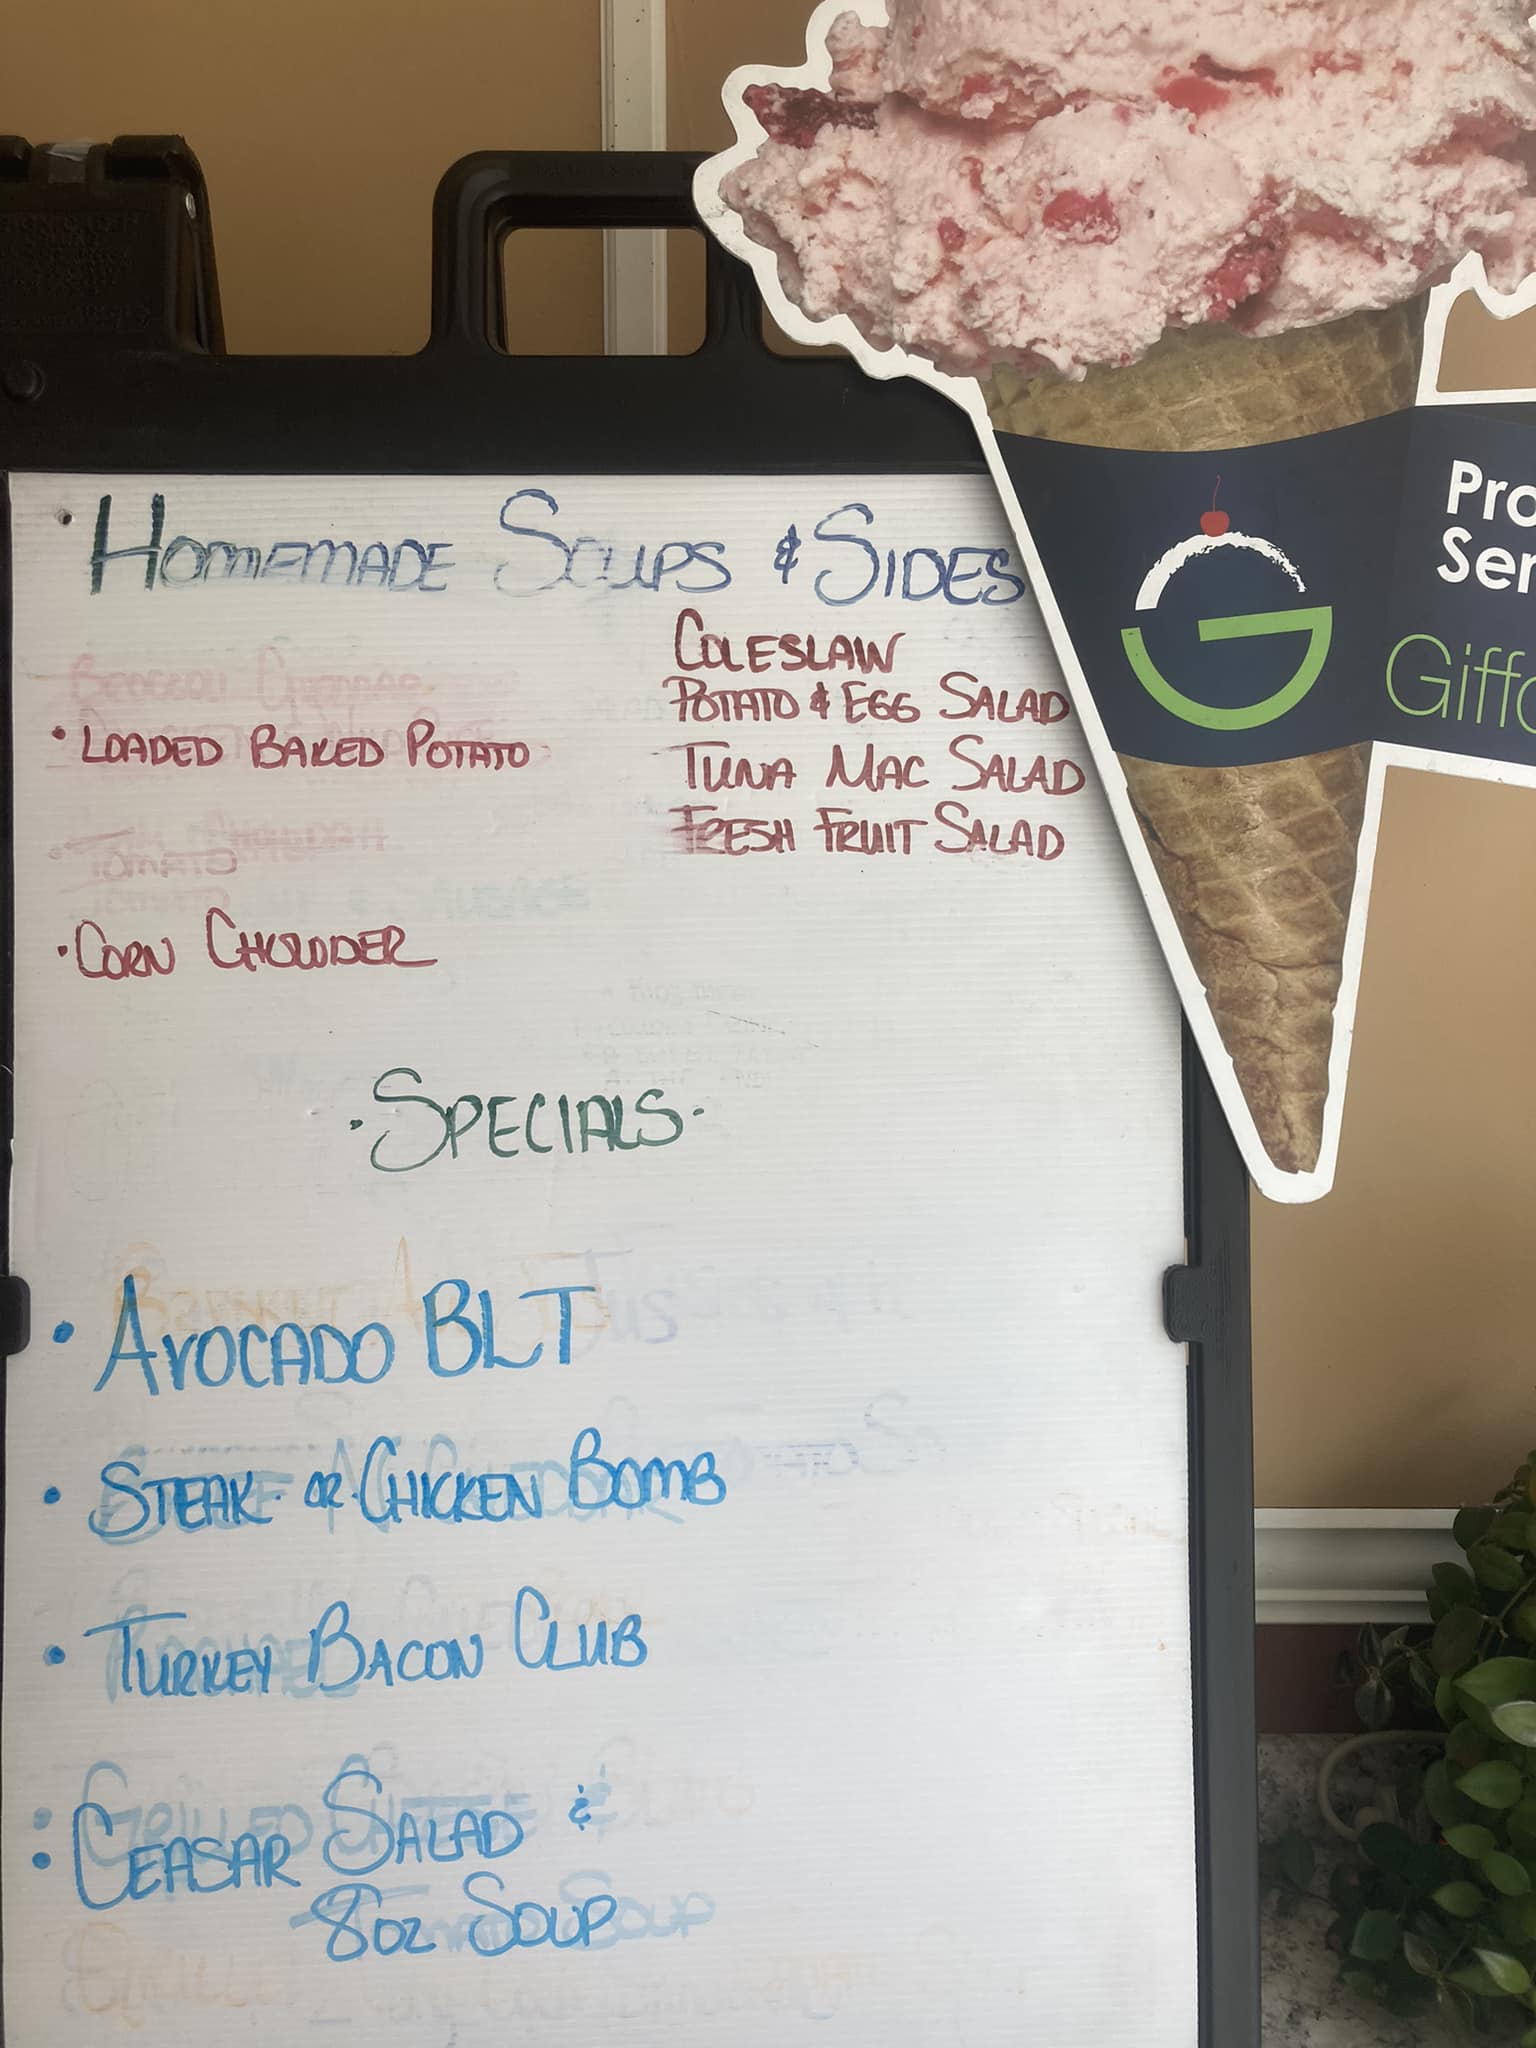 Homemade Soups & Sides
• Loaded Baked Potato
• Tomato
• Corn Chowder
Coleslaw
Potato & Egg Salad
Tuna Mac Salad
Fresh Fruit Salad
• Specials •
• Avocado BLT
• Steak or Chicken Bomb
• Turkey Bacon Club
• Ceasar Salad &
8oz Soup
Pro
Ser
Giffo